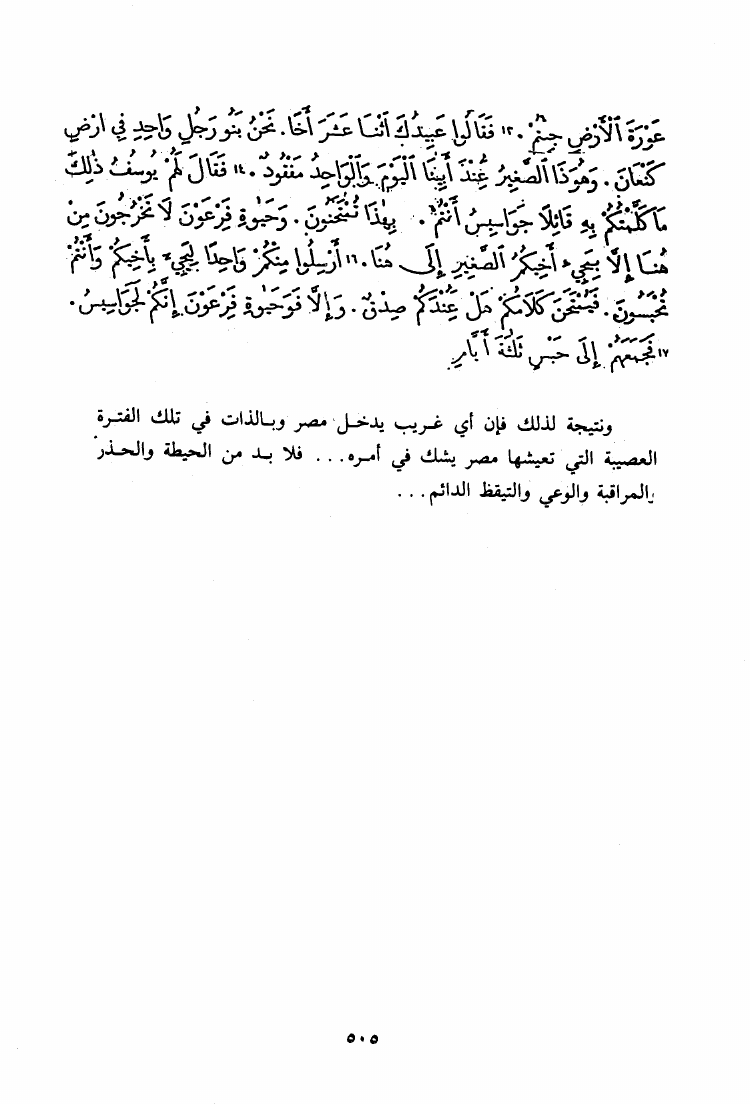 عَوْرَةَ ٱلْأَرْضِ جِئْتُمْ. ١٣ فَقَالُوا عَبِيدُكَ ٱثْنَا عَشَرَ أَخًا. نَحْنُ بَنُو رَجُلٍ وَاحِدٍ فِي ارْضِ
كَنْعَانَ. وَهُوَذَا ٱلصَّغِيرُ عِنْدَ أَبِينَا ٱلْيَوْمَ وَٱلْوَاحِدُ مَفْقُودٌ. ١٤ فَقَالَ لَهُمْ يُوسُفُ ذٰلِكَ
مَا كَلَّمْتُكُمْ بِهِ قَائِلًا جَوَاسِيسُ أَنْتُمْ. بِهٰذَا تُمْتَحَنُونَ. وَحَيٰوةِ فِرْعَوْنَ لَا تَخْرُجُونَ مِنْ
هُنَا إِلَّا بِمَجِيءِ أَخِيكُمُ ٱلصَّغِيرِ إِلَى هُنَا. ١٦ أَرْسِلُوا مِنْكُمْ وَاحِدًا لِيَجِيءَ بِأَخِيكُمْ وَأَنْتُمْ
تُحْبَسُونَ. فَيُمْتَحَنَ كَلَامُكُمْ هَلْ عِنْدَكُمْ صِدْقٌ. وَإِلَّا فَوَحَيٰوةِ فِرْعَوْنَ إِنَّكُمْ لَجَوَاسِيسُ.
١٧ فَجَمَعَهُمْ إِلَى حَبْسٍ ثَلٰثَةَ أَيَّامٍ.
ونتيجة لذلك فإن أي غريب يدخل مصر وبالذات في تلك الفترة
العصيبة التي تعيشها مصر يشك في أمره... فلا بد من الحيطة والحذر
والمراقبة والوعي والتيقظ الدائم...
٥٠٥